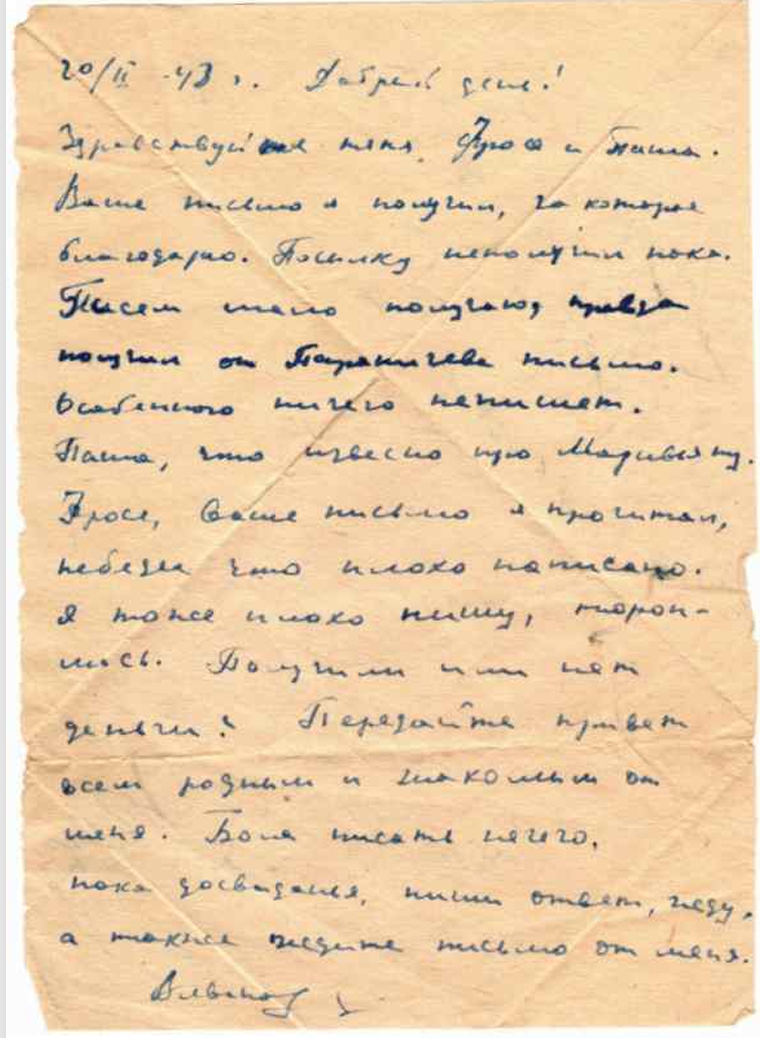 20/II-43 г. Добрый день!
Здравствуйте няня, Фрося и Паша.
Ваше письмо я получил, за которое
благодарю. Посылку неполучил пока.
Писем мало получаю, правда
получил от письмо.
Особенного ничего непишет.
Паша, что извесно про
Фрося, Ваше письмо я прочитал,
небезда что плохо написано.
Я тоже плохо пишу, тороп-
люсь. Получили или нет
деньги? Передайте привет
всем родным и знакомым от
меня. Боля писать нечего,
пока досвиданья, пиши ответ, жду,
а также ждите письмо от меня.